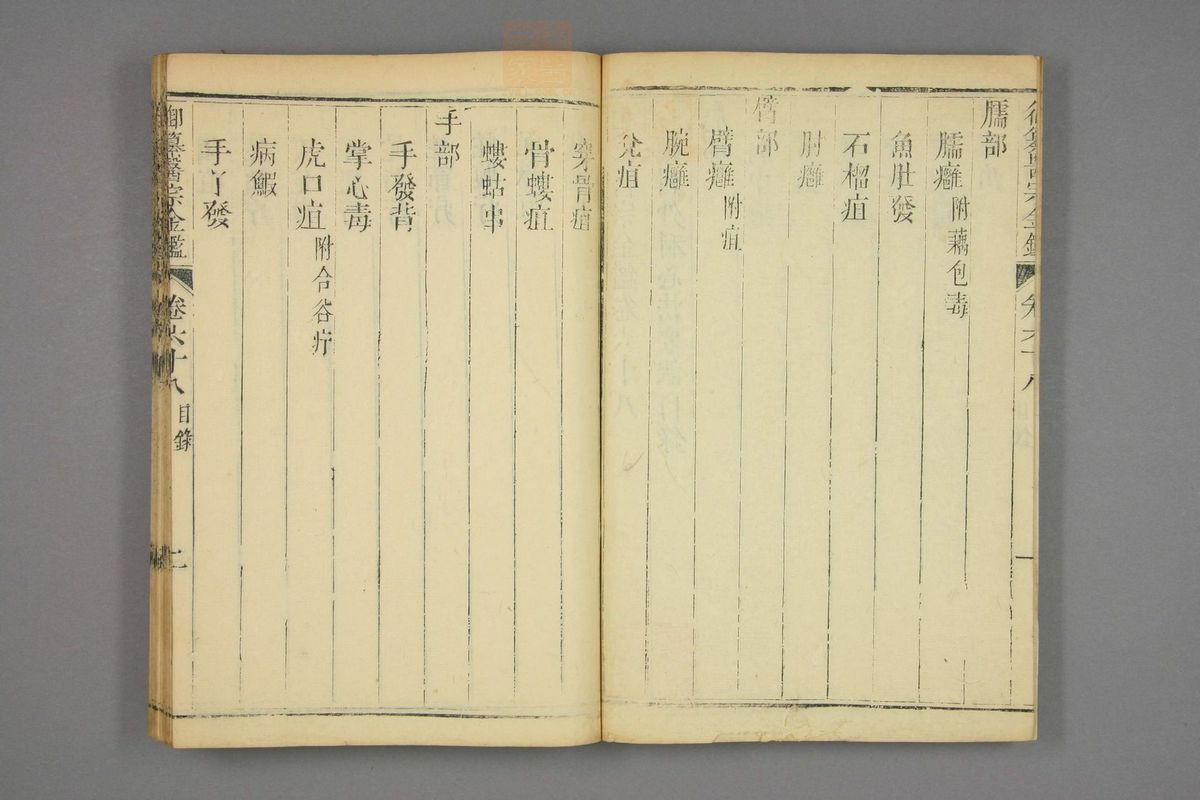 臑部
臑癰附藕包毒
魚肚發
石榴疽
肘癰
臂部
臂癰附疽
腕癰
兌疽
穿骨疽
骨螻疽
螻蛄串
手部
手發背
掌心毒
虎口疽附合谷疔
病鰕
手丫發
御纂醫宗金鑑
卷六十八
目錄